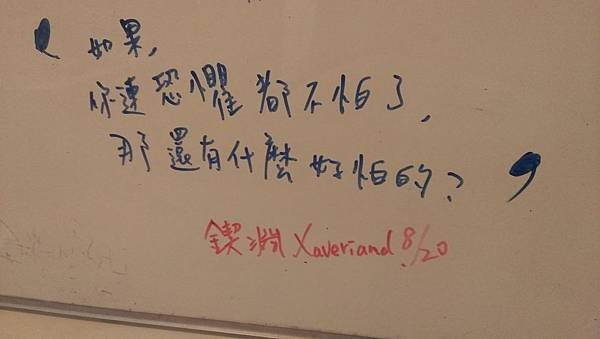 如果,
你連恐懼都不怕了,
那還有什麼好怕的?
鍥淵 Xaveriand 8/20